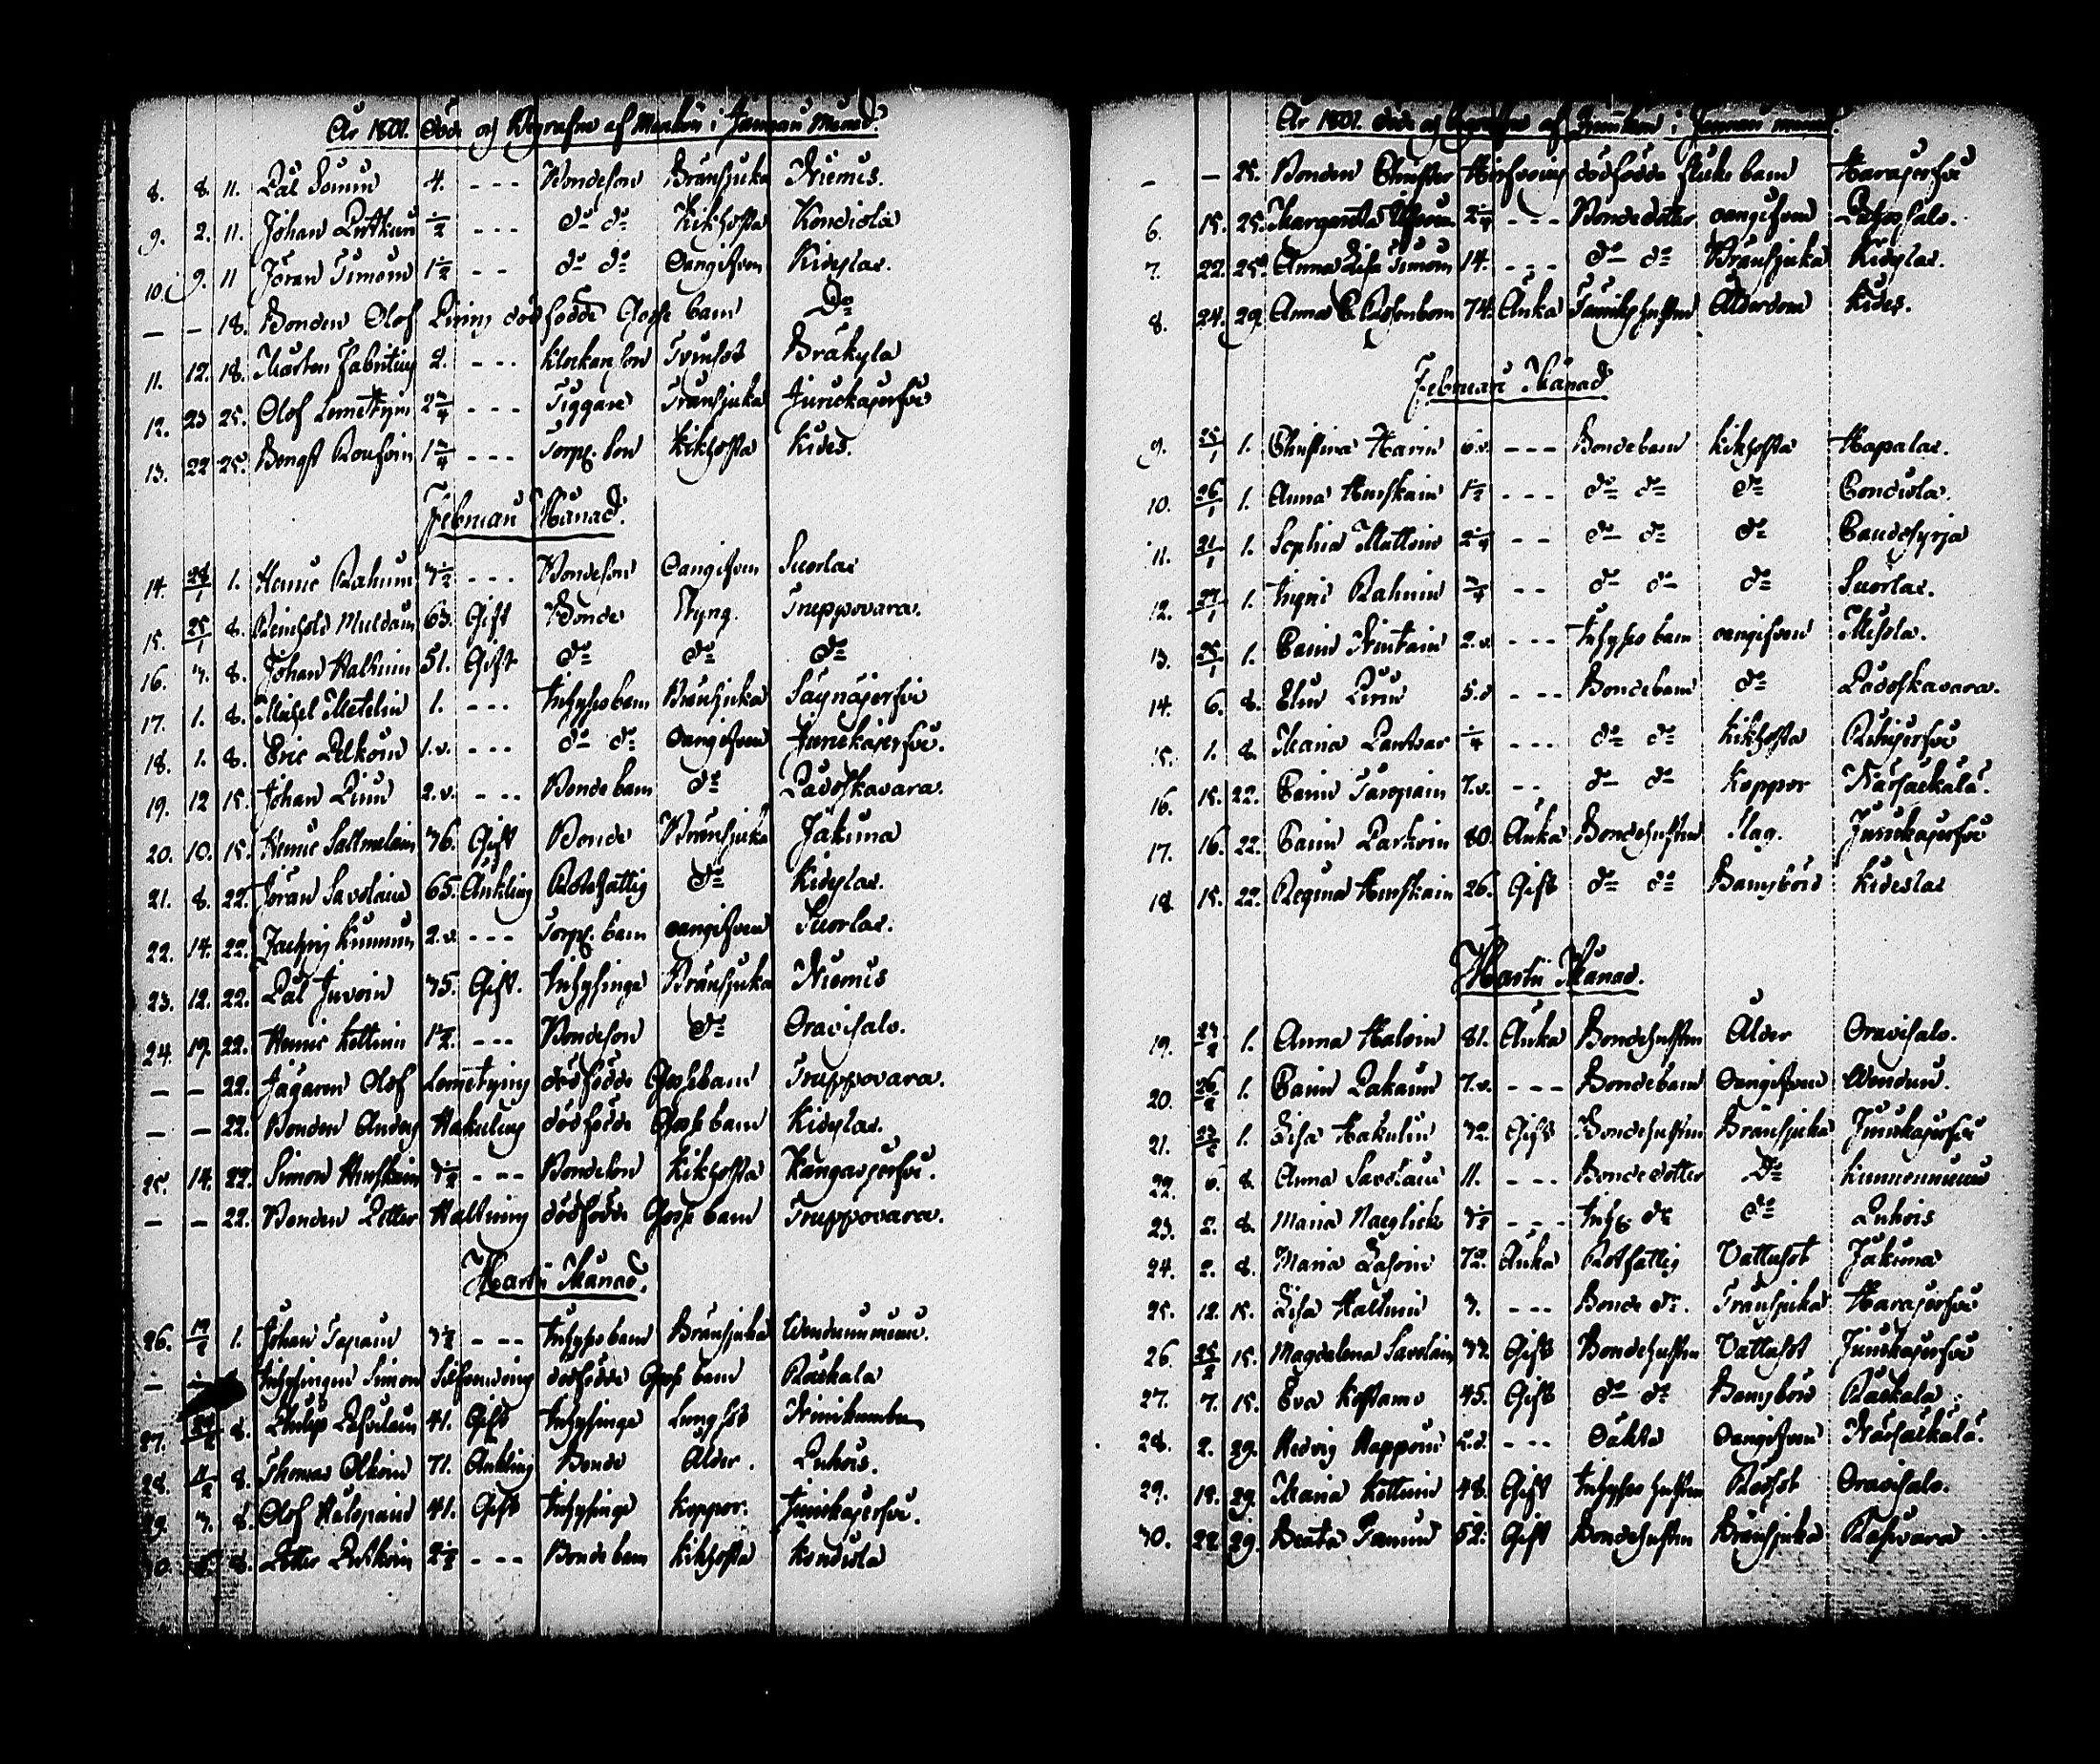 År 1801. Döde og Begrafne af Mankön i Januari Månad.
8. 8. 11. Pål Simun 4. - - - Bondeson Bränsjuka Niemis.
9. 2. 11. Johan ½ - - - do do Kikhosta Kondiola
10. 9. 11 Jöran Simoin 1½ - - do do Oangifven Kideslax.
— — 18. Bonden Olof Pirins dödfödde Gosse barn Do
11. 12. 18. Mårten Fabritius 2. - - - Klockar son Brakyla
12. 23 25. Olof Lemetyin 2¾ - - - Tiggare Bränsjuka Juurikajerfvi
13. 22 25. Bengt Rouvin 1¾ - - - Torp. son Kikhosta Kides.
Februari Månad.
14. 24/1 1. Henric Rahuin 3½ - - - Bondeson Oangifven Suorlax
15. 25/1 8. Reinhold Muldain 63. Gift Bonde Styng. Truppovara.
16. 3. 8. Johan Haltuin 51. Gift do do do
17. 1. 8. Michel Metelin 1. - - - Inhyses barn Bränsjuka Säynäjerfvi
18. 1. 8. Eric Pelkoin 1.v. - - - do do Oangifven Juurikajerfvi.
19. 12 15. Johan Pirin 2.v. - - - Bonde barn do Padoskavara.
20. 10. 15. Henric Sallmelain 76. Gift Bonde Bränsjuka Jakuna
21. 8. 22. Jöran Savolain 65. Änkling Rotefattig do Kideslax.
22. 14. 22. Zachris Kinnuin 2.v. - - - Torp. barn oangifven Suorlax.
23. 12. 22. Pål Juvoin 75. Gift. Inhysinge Bränsjuka Niemis
24. 19. 22. Henric Kettuin 1½. - - - Bondeson do Oravisalo.
— — 22. Jägaren Olof Lemetyins dödfödde Gossebarn Truppovara.
— — 22. Bonden Anders Hakulins dödfödde Gosse barn Kideslax.
25. 14. 22. Simon Hirskain 3½ - - - Bondeson Kikhosta Kangasjerfvi.
— — 22. Bonden Petter Haltuins dödfödde Gosse barn Truppovara.
Martii Månad.
26. 19/2 1. Johan Tapain 3½ - - - Inhyses barn Bränsjuka
— Inhysingen Simon dödfödde Gosse barn Raekala
27. 8. Philip 41. Gift Inhysinge Lungsot
28. 11/2 8. Thomas Olkoin 71. Änkling Bonde Ålder. Puhois.
29. 3. 8. Olof Halopain 41. Gift Inhysinge Koppor. Juurikajerfvi.
30. 8. Petter Pelkoin 2½ - - - Bonde barn Kikhosta Kondiola
År 1801. döde og begrafne af Qvinkön i Januari månad.
— — 25. Bonden Christer Hirfvoins dödfödde flicke barn Harajerfvi
6. 15. 25. Margareta 2¼ - - - Bondedotter oangifven Potossalo.
7. 22. 25. Anna Lisa Simoin 14. - - - do do Bränsjuka Kideslax.
8. 24. 29. Anna C. 74. Änka Ålderdom Kides.
Februari Månad
9. 25/1 1. Christina Harin 6.v. - - - Bondebarn Kikhosta Hapalax.
10. 26/1 1. Anna Hirskain 1½ - - - do do do Condiola.
11. 21/1 1. Sophia Mattoin 2¼ - - do do do
12. 27/1 1. Ingrid Rahuin ¾ - - do do do Suorlax.
13. 25/1 1. Carin 2.v. - - - Inhyses barn oangifven
14. 6. 8. Elin Pirin 5.d - - - Bondebarn do Padoskavara.
15. 1. 8. Maria ¼ - - - do do Kikhosta
16. 15. 22. Carin Taropain 7.v. - - do do Koppor Närsäckälä.
17. 16. 22. Carin Parkoin 80. Änka Bondehustru Mag. Juurikajerfvi
18. 15. 22. Regina Hirskain 26. Gift do do Barnsbörd Kideslax
Martii Månad.
19. 1. Anna Haloin 81. Änka Bondehustru Ålder Oravisalo.
20. 26/2 1. Carin Pakarin 7.v. - - - Bondebarn Oangifven
21. 1. Lisa Hakulin 72. Gift Bondehustru Bränsjuka Juurikajerfvi
22. 6. 8. Anna Savolain 11. - - - Bondedotter Do
23. 2. 8. Maria 3½ - - - Inh. do do Puhois
24. 2. 8. Maria Lasoin 72. Änka Rotfattig Vattusot Jakuna
25. 12. 15. Lisa Haltuin 3. - - - Bonde do. Bränsjuka Harajerfvi
26. 25/2 15. Magdalena Savolain 37. Gift Bondehustru Vattusot Juurikajerfvi
27. 7. 15. Eva Kostamo 45. Gift do do Barnsbörd Raekala.
28. 2. 29. Hedvig Happoin - - - Oäkta Oangifven Närsäckälä.
29. 19. 29. Maria Kettuin 48. Gift Inhyses hustru Rödsot Oravisalo.
30. 22 29. Beata 52. Gift Bondehustru Bränsjuka Rasivara